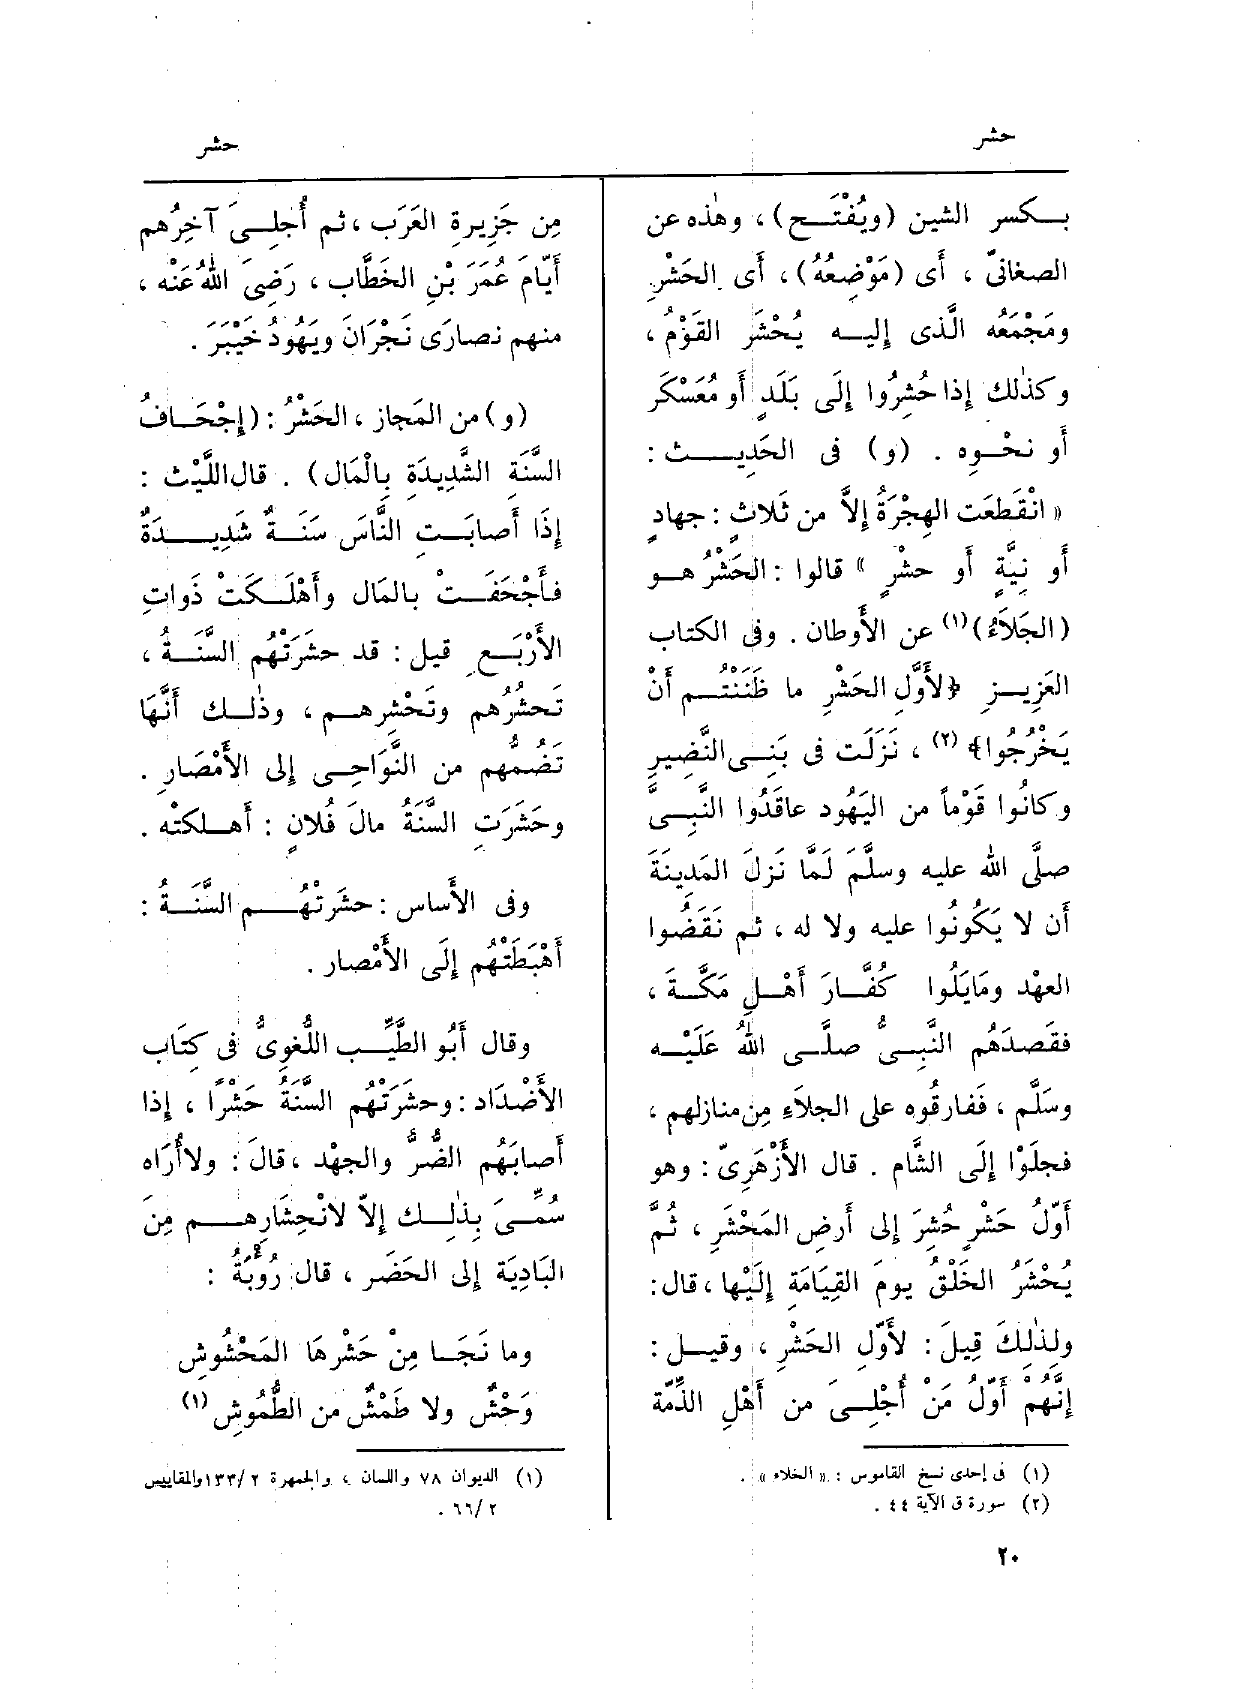 حشر
حشر
بـكسر الشين (ويُفْتَـح) ، وهٰذه عن
الصغانىّ ، أى (مَوْضِعُهُ) ، أى الحَشْرِ
ومَجْمَعُه الَّذى إليـه يُحْشَر القَوْمُ ،
وكذٰلك إذا حُشِرُوا إلَى بَلَدٍ أو مُعَسْكَر
أو نحْـوه . (و) فى الحَدِيـث :
« انْقَطَعَت الهِجْرَةُ إلاَّ من ثَلاث : جهادٍ
أو نِيَّةٍ أو حشْرٍ » قالوا : الحَشْرُ هـو
(الجَلاَءُ)(١) عن الأَوطان . وفى الكتاب
العَزِيـز ﴿لأَوَّلِ الحَشْرِ ما ظَنَنْتُـم أَنْ
يَخْرُجُوا﴾ (٢) ، نَزَلَت فى بَنِـى النَّضِيرِ
وكانُوا قَوْماً من اليَهُود عاقَدُوا النَّبِـىَّ
صلَّى الله عليه وسلَّمَ لَمَّا نَزلَ المَدِينَةَ
أن لا يَكُونُوا عليه ولا له ، ثم نَقَضُوا
العهْد ومَايَلُوا كُفَّـارَ أَهْـلِ مَكَّـةَ ،
فقَصدَهُم النَّبِـىُّ صلَّـى اللهُ عَلَيْـه
وسَلَّم ، فَفارقُوه على الجلاَءِ مِن منازلهم ،
فجلَوْا إلَى الشَّام . قال الأَزْهَرِىّ : وهو
أَوّلُ حَشْرٍ حُشِرَ إلى أَرضِ المَحْشَرِ ، ثُمَّ
يُحْشَرُ الخَلْقُ يومَ القِيَامَةِ إلَيْها ، قال :
ولذٰلِكَ قِيلَ : لأَوّلِ الحَشْرِ ، وقيـل :
إنَّهُمْ أَوّلُ مَنْ أُجْلِـىَ من أَهْلِ الذِّمَّة
(١) فى إحدى نسخ القاموس : « الخلاء » .
(٢) سورة ق الآية ٤٤ .
٢٠
مِن جَزِيرةِ العَرَب ، ثم أُجلِـىَ آخِرُهم
أَيّامَ عُمَرَ بْنِ الخَطَّاب ، رَضِىَ اللهُ عَنْه ،
منهم نصارَى نَجْرَانَ ويَهُودُ خَيْبَرَ .
(و) من المَجاز ، الحَشْرُ : (إجْحَـافُ
السَّنَةِ الشَّدِيدَةِ بِالْمَال) . قال اللَّيْث :
إذَا أَصابَـتِ النَّاسَ سَنَـةٌ شَدِيـدَةٌ
فـأَجْحَفَـتْ بالمَال وأَهْلَـكَتْ ذَواتِ
الأَرْبَـعِ قيل : قد حشَرَتْهُم السَّنَـةُ ،
تَحشُرُهم وتَحْشِرهـم ، وذٰلـك أَنَّهَا
تَضُمُّهم من النَّوَاحِـى إلى الأَمْصَارِ .
وحَشَرَتِ السَّنَةُ مالَ فُلانٍ : أَهـلكتْه .
وفى الأَساس : حشَرتْهُـم السَّنَـةُ :
أَهْبَطَتْهُم إلَى الأَمْصار .
وقال أَبُو الطَّيِّـب اللُّغوِىُّ فى كِتَاب
الأَضْدَاد : وحشَرَتْهُم السَّنَةُ حَشْرًا ، إذا
أَصابَهُم الضُّرُّ والجهْد ، قالَ : ولا أُرَاه
سُمِّـىَ بذٰلِـك إلاّ لانْحِشَارِهـم مِن
البَادِيَة إلى الحَضَر ، قال رُؤبَةُ :
وما نَجَـا مِنْ حَشْرِهَا المَحْشُوشِ
وَحْشٌ ولا طَمْشٌ من الطُّمُوشِ (١)
(١) الديوان ٧٨ واللسان ، والجمهرة ٢ /١٣٣ والمقاييس
٢ /٦٦ .